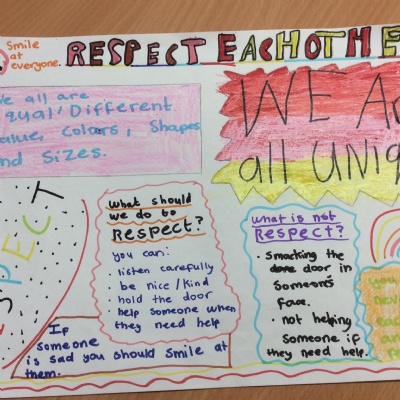 Smile
at
everyone.
RESPECT EACHOTHE
we all are
Equal/Different
Value, Colors, Shapes
and Sizes.
WE A
all UNIQ
RESPECT
What should
we do to
RESPECT?
you can:
listen carefully
. be nice/kind
. hold the door
help someone when
they need help
What is not
RESPECT?
• Smacking the
door in
someone's
face.
• not helping
someone if
they need help.
you
neve
If
someone
is sad you should smile at
them.